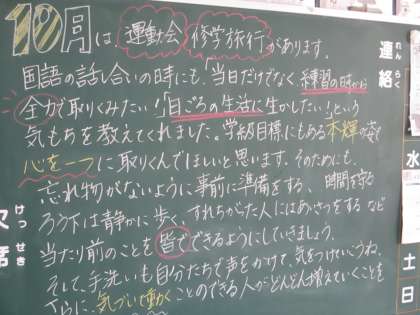 10月は、運動会、修学旅行があります。
国語の話し合いの時にも、「当日だけでなく練習の時から
全力で取りくみたい！」「日ごろの生活に生かしたい」という
気もちを教えてくれました。学級目標にもある本輝の姿で
心を一つに取りくんでほしいと思います。そのためにも、
忘れ物がないように事前に準備をする、時間を守る
ろう下は静かに歩く、すれちがった人にはあいさつをするなど
当たり前のことを皆でできるようにしていきましょう。
そして、手洗いも自分たちで声をかけて、気をつけていこうね。
さらに、気づいて動くことのできる人がどんどん増えていくことを
連絡
れんらく
水
土
日
欠席
けっせき